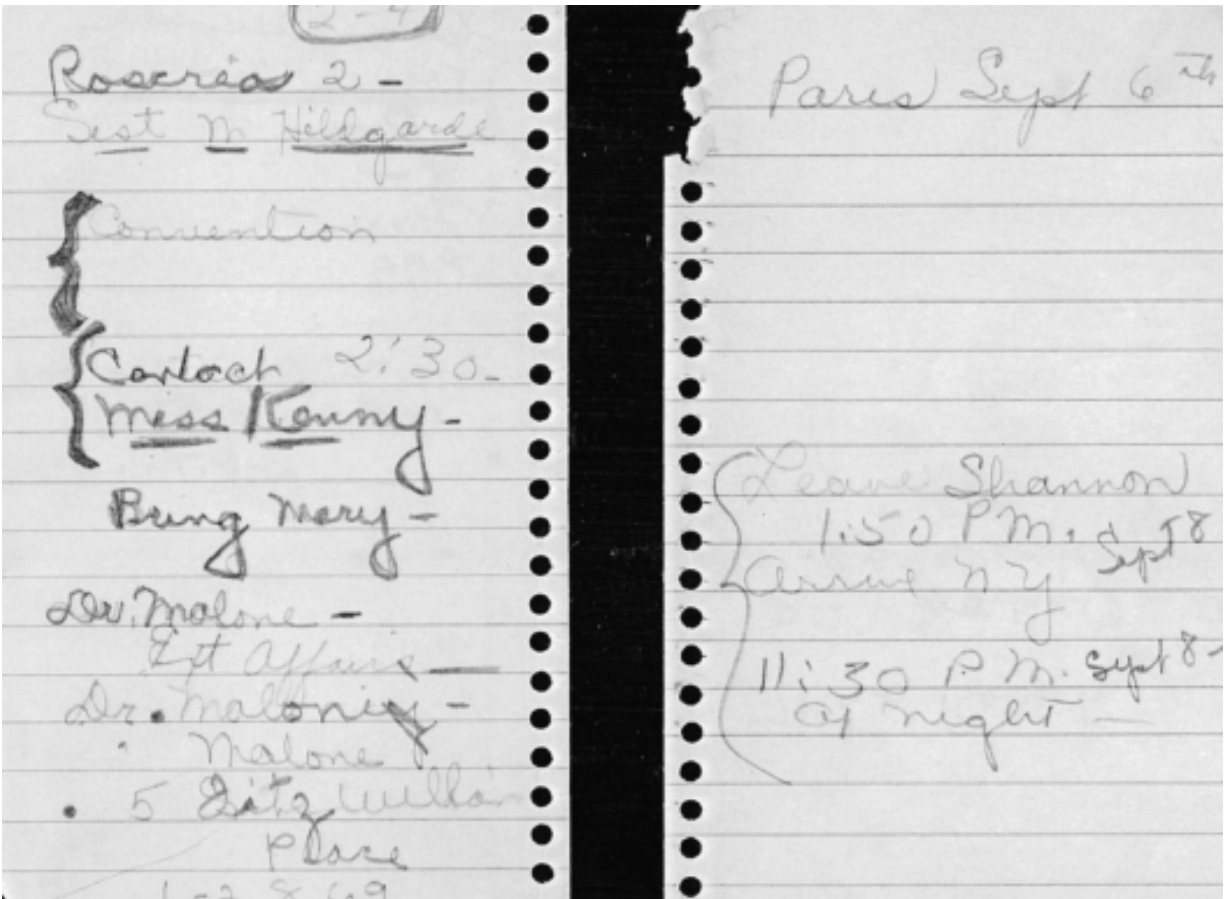 2-4
Rosaries 2 -
Sist M Hildgarde
Convention
2:30-
Miss Kenny-
Bring Mary-
Dr. Malone -
Ext Affairs
Dr. Maloney -
Malone
5 Fitz William
Place
Paris Sept 6th
Leave Shannon
1:50 P.M. Sept 8
arrive NY
11:30 P.M. Sept 8-
at night